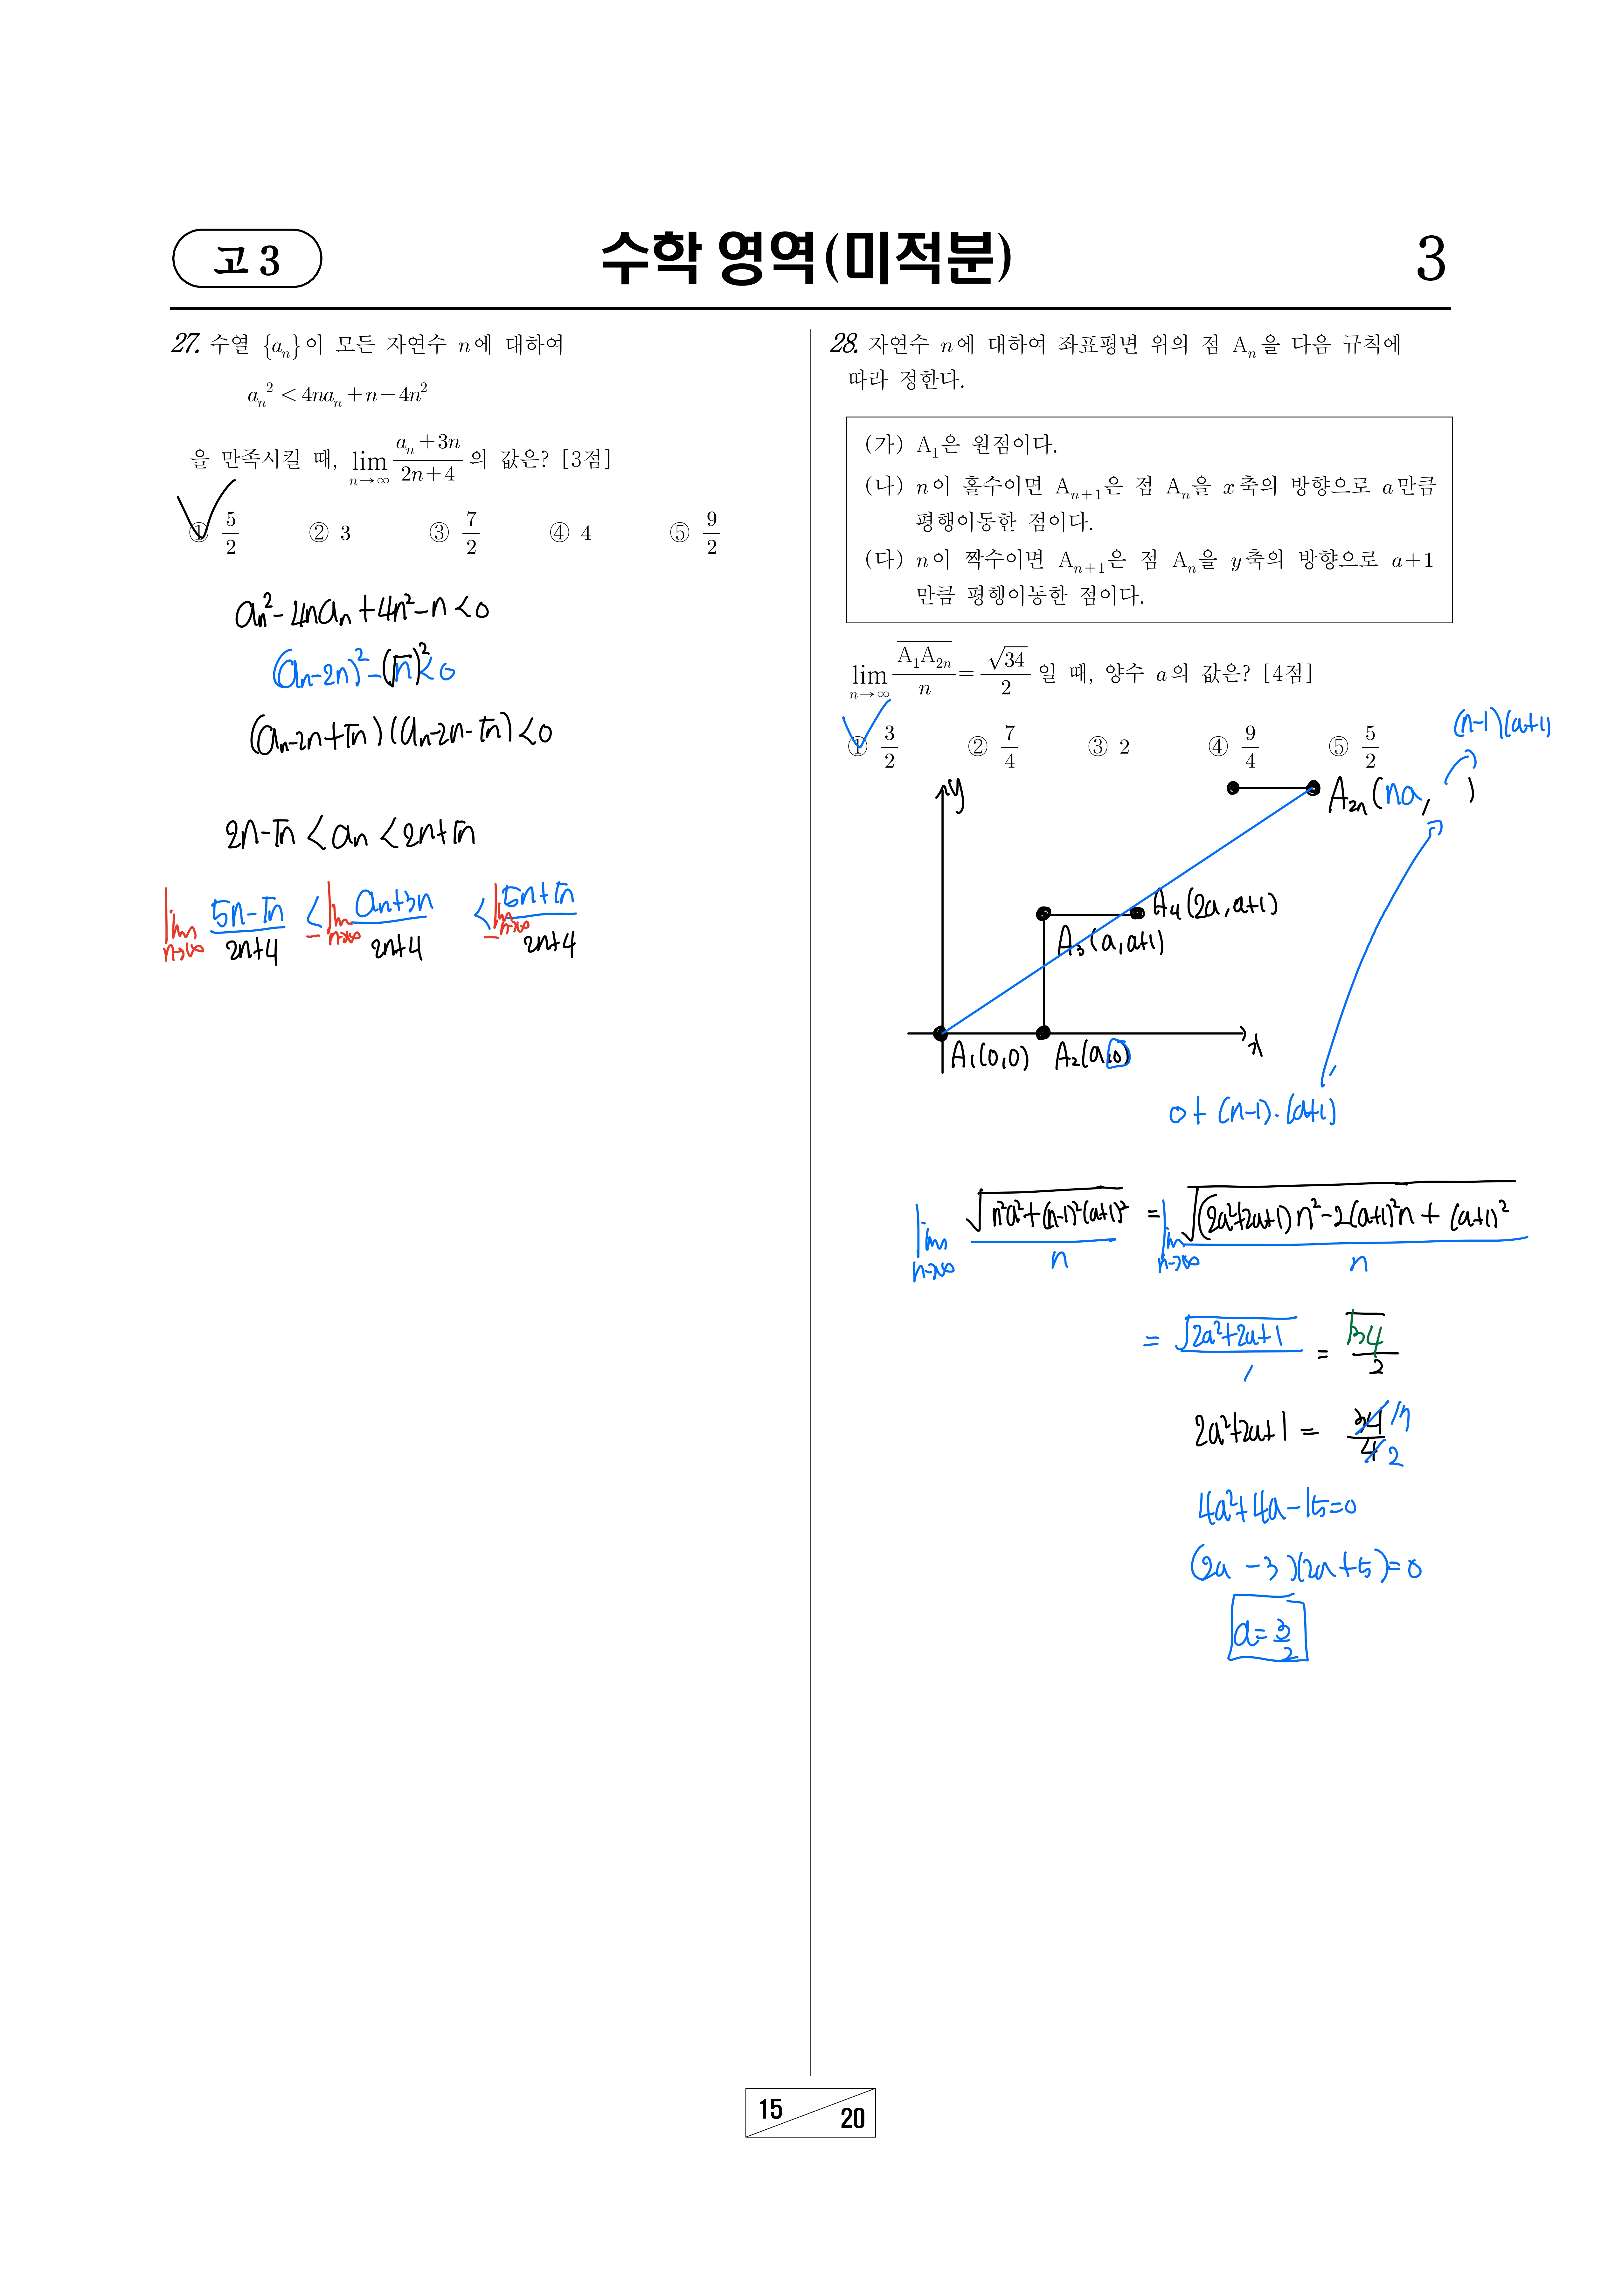 고 3
수학 영역(미적분)
3
27. 수열 {aₙ}이 모든 자연수 n에 대하여
aₙ² < 4naₙ + n − 4n²
을 만족시킬 때, lim_{n→∞} (aₙ + 3n)/(2n + 4) 의 값은? [3점]
① 5/2 ② 3 ③ 7/2 ④ 4 ⑤ 9/2
aₙ² − 4naₙ + 4n² − n < 0
(aₙ − 2n)² − (√n)² < 0
(aₙ − 2n + √n)(aₙ − 2n − √n) < 0
2n − √n < aₙ < 2n + √n
lim_{n→∞} (5n − √n)/(2n + 4) ≤ lim_{n→∞} (aₙ + 3n)/(2n + 4) ≤ lim_{n→∞} (5n + √n)/(2n + 4)
28. 자연수 n에 대하여 좌표평면 위의 점 Aₙ을 다음 규칙에
따라 정한다.
(가) A₁은 원점이다.
(나) n이 홀수이면 Aₙ₊₁은 점 Aₙ을 x축의 방향으로 a만큼
평행이동한 점이다.
(다) n이 짝수이면 Aₙ₊₁은 점 Aₙ을 y축의 방향으로 a+1
만큼 평행이동한 점이다.
lim_{n→∞} A₁A₂ₙ/n = √34/2 일 때, 양수 a의 값은? [4점]
① 3/2 ② 7/4 ③ 2 ④ 9/4 ⑤ 5/2
(n−1)(a+1)
y
A₂ₙ(na, )
A₄(2a, a+1)
A₃(a, a+1)
x
A₁(0,0) A₂(a,0)
0 + (n−1)·(a+1)
lim_{n→∞} √(n²a² + (n−1)²(a+1)²)/n = lim_{n→∞} √((2a²+2a+1)n² − 2(a+1)²n + (a+1)²)/n
= √(2a²+2a+1)/1 = √34/2
2a²+2a+1 = 34/4 17 2
4a²+4a−15=0
(2a − 3)(2a+5)=0
a = 3/2
15
20